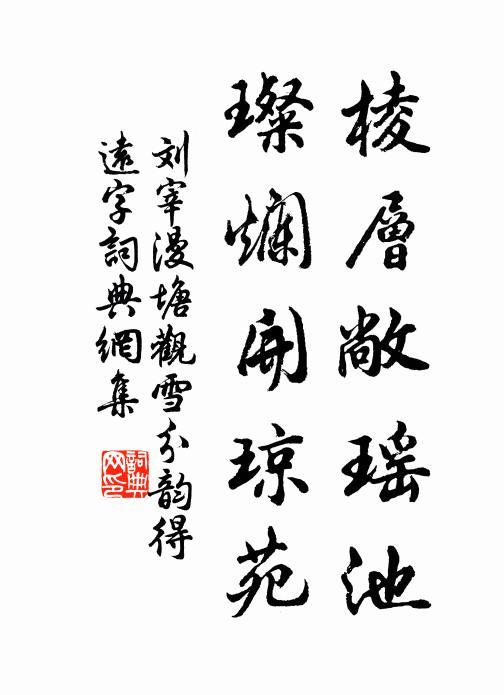 棱層敞瑶池
璨爛開琼苑
刘宰漫塘觀雪分韵得
遠字詞典網集
詞典网印